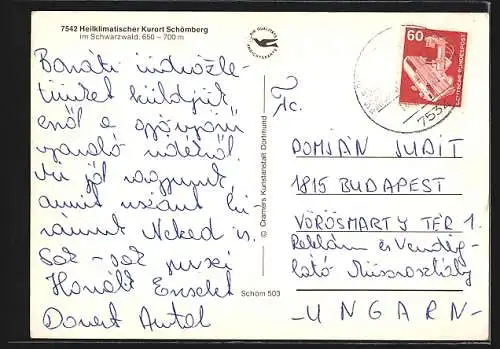 7542 Heilklimatischer Kurort Schömberg
im Schwarzwald, 650 – 700 m
Baráti üdvözle-
tünket küldjük
erről a gyönyörű
nyaraló
jól vagyunk,
amit viszont kí-
vánunk Neked is.
Sok - sok puszi
Donert Antal
© Cramers Kunstanstalt Dortmund
Schöm 503
60
DEUTSCHE BUNDESPOST
753
DOMJÁN JUDIT
1815 BUDAPEST
VÖRÖSMARTY TÉR 1.
Reklám és Vendég-
látó Műsorosztály
- UNGARN -